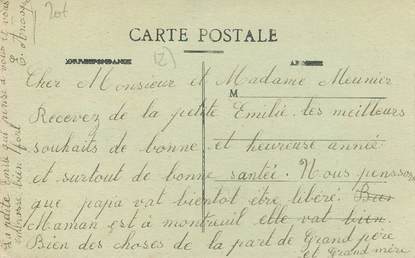 20f
CARTE POSTALE
CORRESPONDANCE
ADRESSE
(2)
M
Cher Monsieur et Madame Meunier
Recevez de la petite Emilie les meilleurs
souhaits de bonne et heureuse année
et surtout de bonne santée. Nous penssons
que papa vat bientot être libéré. Bien
Maman est à montreuil ette vat bien.
Bien des choses de la part de Grand père
et Grand mère
La petite Emilie qui pense à vous et vous
embrasse bien fort